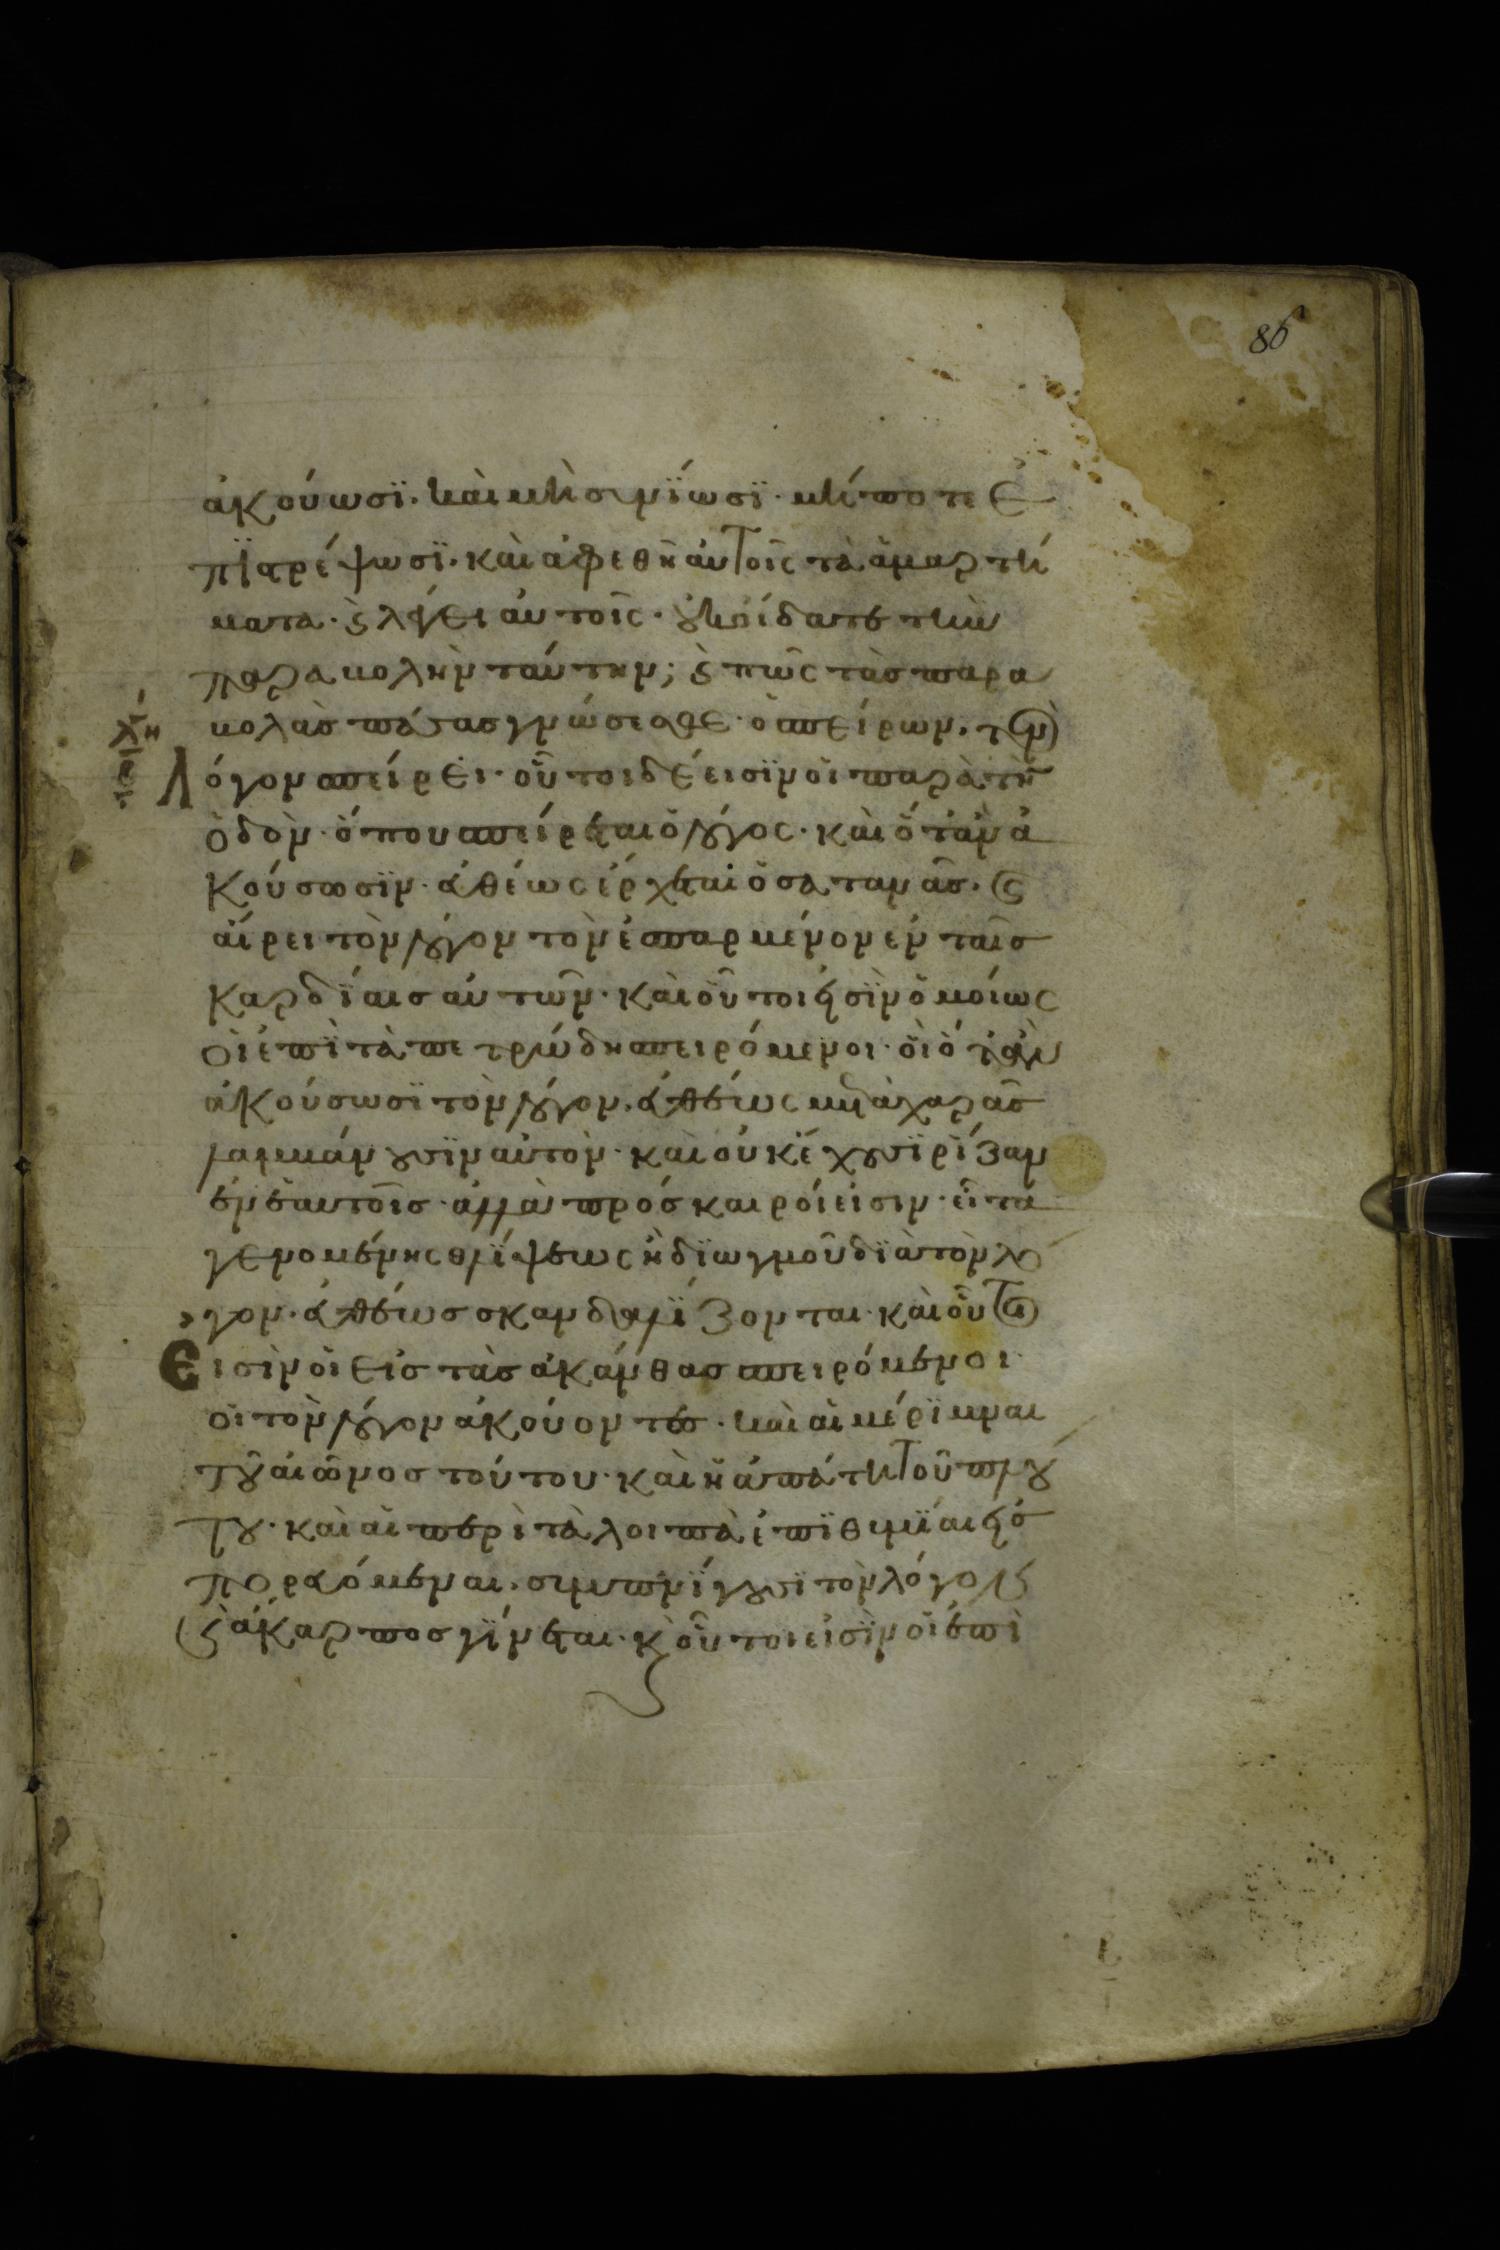 86
ἀκούωσϊ· καὶ μὴ συνϊωσϊ· μήποτε ἐ
πϊστρέψωσϊ· καὶ ἀφεθῆ αὐτοῖς τὰ ἁμαρτή
ματα· ϛ λέγει αὐτοῖς· οὐκ οἴδατε τὴν
παραβολὴν ταύτην; ϛ πῶς τὰς παρα
βολὰς πάσας γνώσεσθε· ὁ σπείρων· τὸν
λόγον σπείρει· οὗτοι δέ εισϊν οἱ παρὰ τὴν
ὁδὸν· ὅπου σπείρεται ὁ λόγος· καὶ ὅταν ἀ
κούσωσϊν· εὐθέως ἔρχεται ὁ σατανᾶς· ϛ
αἴρει τὸν λόγον τὸν ἐσπαρμένον ἐν ταῖς
καρδΐαις αὐτῶν· καὶ οὗτοι εἰσϊν ὁμοίως
οἱ ἐπϊ τὰ πετρώδη σπειρόμενοι· οἳ ὅταν
ἀκούσωσϊ τὸν λόγον· εὐθέως μετὰ χαρᾶς
λαμβάνουσϊν αὐτὸν· καὶ οὐκ ἔχουσϊ ρίζαν
ἐν ἑαυτοῖς· ἀλλὰ πρόσκαιροί εἰσιν· εἶτα
γενομένης θλϊψεως ἢ δϊωγμοῦ δϊὰ τὸν λό
γον· εὐθέως σκανδαλΐζονται· καὶ οὗτοι
εἰσὶν οἱ εἰς τὰς ἀκάνθας σπειρόμενοι·
οἱ τὸν λόγον ἀκούοντες· καὶ αἱ μέρϊμναι
τοῦ αἰῶνος τούτου· καὶ ἡ ἀπάτη τοῦ πλού
του· καὶ αἱ περὶ τὰ λοιπὰ ἐπϊθυμΐαι εἰσ
πορευόμεναι· συμπνΐγουσϊ τὸν λόγον
ϛ ἄκαρπος γΐνεται· κ οὗτοι εἰσϊν οἱ ἐπὶ